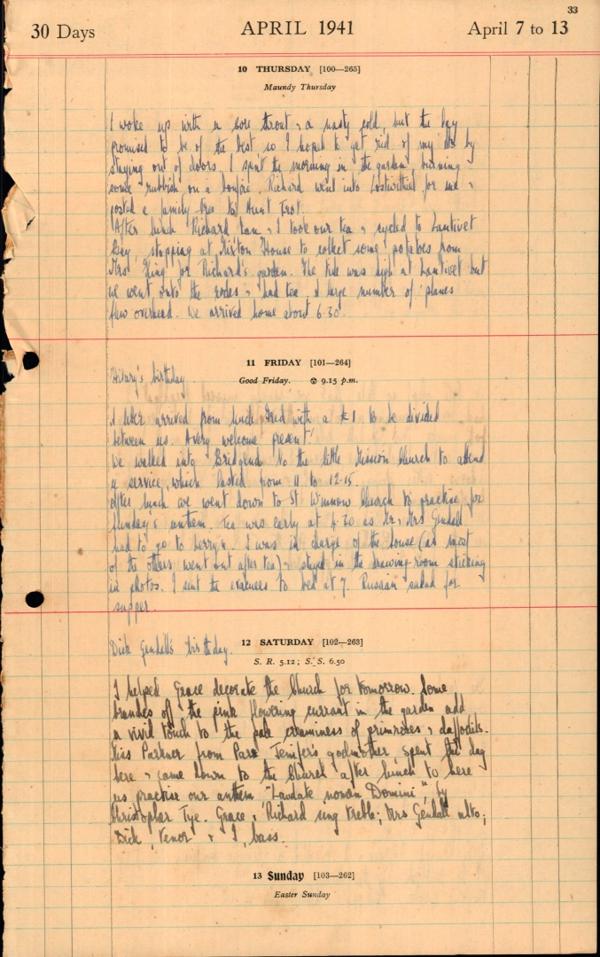 33
30 Days APRIL 1941 April 7 to 13
10 THURSDAY [100—265]
Maundy Thursday
I woke up with a sore throat & a nasty cold, but the day
promised to be of the best so I hoped to get rid of my by
staying out of doors. I spent the morning in the garden burning
some rubbish on a bonfire. Richard went into Lostwithiel for me &
posted a family tree to Aunt Trot.
After lunch Richard & I took our tea & cycled to Lantivet
Bay, stopping at House to collect some potatoes from
Mrs King for Richard's garden. The tide was high at Lantivet but
we went onto the rocks & had tea. A large number of planes
flew overhead. We arrived home about 6.30
11 FRIDAY [101—264]
Hilary's birthday.
Good Friday. 9.15 p.m.
A letter arrived from with a £1 to be divided
between us. A very welcome present!
We walked into Bridgend to the little Mission Church to attend
a service, which lasted from 11 to 12.15.
After lunch we went down to St Winnow Church to practise for
Sunday's anthem. Tea was early at 4.30 as Dr & Mrs Gendall
had to go to Merryn. I was in charge of the house (as most
of the others went out after tea) & stayed in the drawing room sticking
in photos. I sent the evacuees to bed at 7. Russian salad for
supper.
Dick Gendall's birthday.
12 SATURDAY [102—263]
S. R. 5.12; S. S. 6.50
I helped Grace decorate the Church for tomorrow. Some
branches of the pink flowering currant in the garden add
a vivid touch to the pale creaminess of primroses & daffodils.
Miss Parkner from Par, Jenifer's godmother, spent the day
here & came down to the Church after lunch to hear
us practise our anthem "Laudate nomen Domini" by
Christopher Tye. Grace & Richard sing treble; Mrs Gendall alto;
Dick, tenor & I, bass.
13 Sunday [103—262]
Easter Sunday